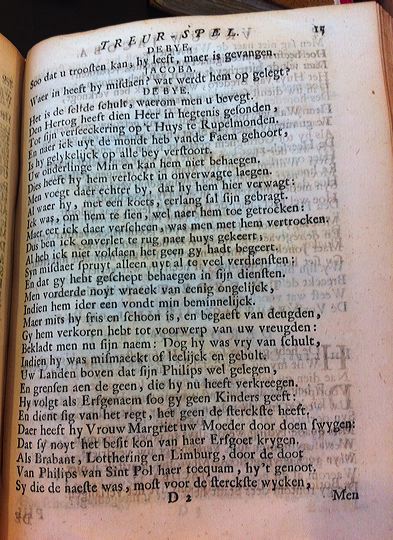 TREUR-SPEL. 15
DE BYE.
Soo dat u troosten kan, hy leeft, maer is gevangen.
JACOBA.
Waer in heeft hy misdaen? war werdt hem op gelegt?
DE BYE.
Het is de selfde schult, waerom men u bevegt.
Den Hertog heeft dien Heer in hegtenis gesonden,
Tot sijn verseeckering op't Huys te Rupelmonden.
En naer ick uyt de monde heb vande Faem gehoort,
Is hy gelykelijck op alle bey verstoort.
Uw onderlinge Min en kan hem niet behaegen.
Dies heeft hy hem verlockt in onverwagte laegen.
Men voegt daer echter by, dat hy hem hier verwagt:
Al waer hy, met een koets, eerlang sal sijn gebragt.
Ick was, om hem te sien, wel naer hem toe getrocken:
Maer eer ick daer verscheen, was men met hem vertrocken.
Dus ben ick onverlet te rug naer huys gekeert,
Al heb ick niet voldaen het geen gy hadt begeert.
Syn misdaet spruyt alleen uyt al te veel verdiensten:
En dat gy hebt geschept behaegen in sijn diensten.
Men vorderde noyt wraeck van eenig ongelijck,
Indien hem ider een vondt min beminnelijck.
Maer mits hy fris en schoon is, en begaeft van deugden,
Gy hem verkoren hebt tot voorwerp van uw vreugden:
Bekladt men nu sijn naem: Dog hy was vry van schult,
Indien hy was mismaeckt of leelijck en gebult.
Uw Landen boven dat sijn Philips wel gelegen,
En grensen aen de geen, die hy nu heeft verkreegen.
Hy volgt als Erfgenaem soo gy geen Kinders geeft:
En dient sig van het regt, het geen de sterckste heeft.
Daer heeft hy Vrouw Margriet uw Moeder door doen swygen:
Dat sy noyt het besit kon van haer Erfgoet krygen.
Als Brabant, Lotthering en Limburg, door de doot
Van Philips van Sint Pol haer toequam, hy't genoot.
Sy die de naeste was, most voor de sterckste wycken,
D 2 Men